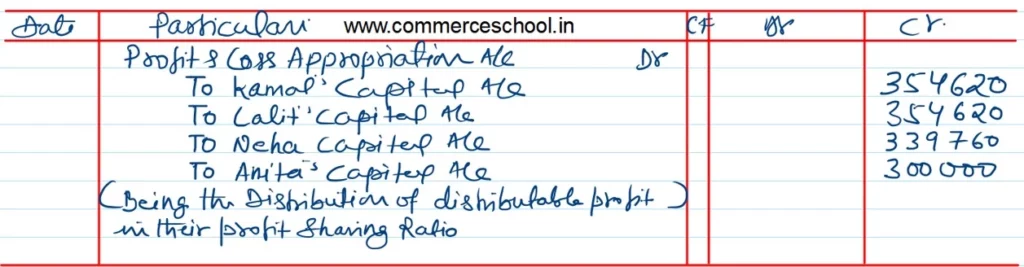 Date Particulars www.commerceschool.in LF Dr Cr.
Profit & Loss Appropriation A/c Dr
To Kamal's Capital A/c 354620
To Lalit's Capital A/c 354620
To Neha Capital A/c 339760
To Anita's Capital A/c 300000
(Being the Distribution of distributable profit)
in their profit Sharing Ratio